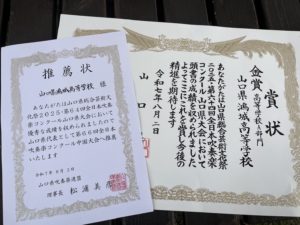 推薦状
山口県鴻城高等学校 様
あなたがたは山口県総合芸術文
化祭2025・第66回全日本吹
奏楽コンクール山口県大会において
優秀な成績を収められましたので
山口県代表として第66回全日本
吹奏楽コンクール中国大会へ推薦
いたします
令和7年8月2日
山口県吹奏楽連盟
理事長 松浦
金賞 賞状
高等学校A部門
山口県鴻城高等学校
あなたがたは山口県総合芸術文化祭
コンクール山口県大会において
頭書の成績を収められました
よってこれを賞し今後の
精進を期待します
令和七年八月二日
山口